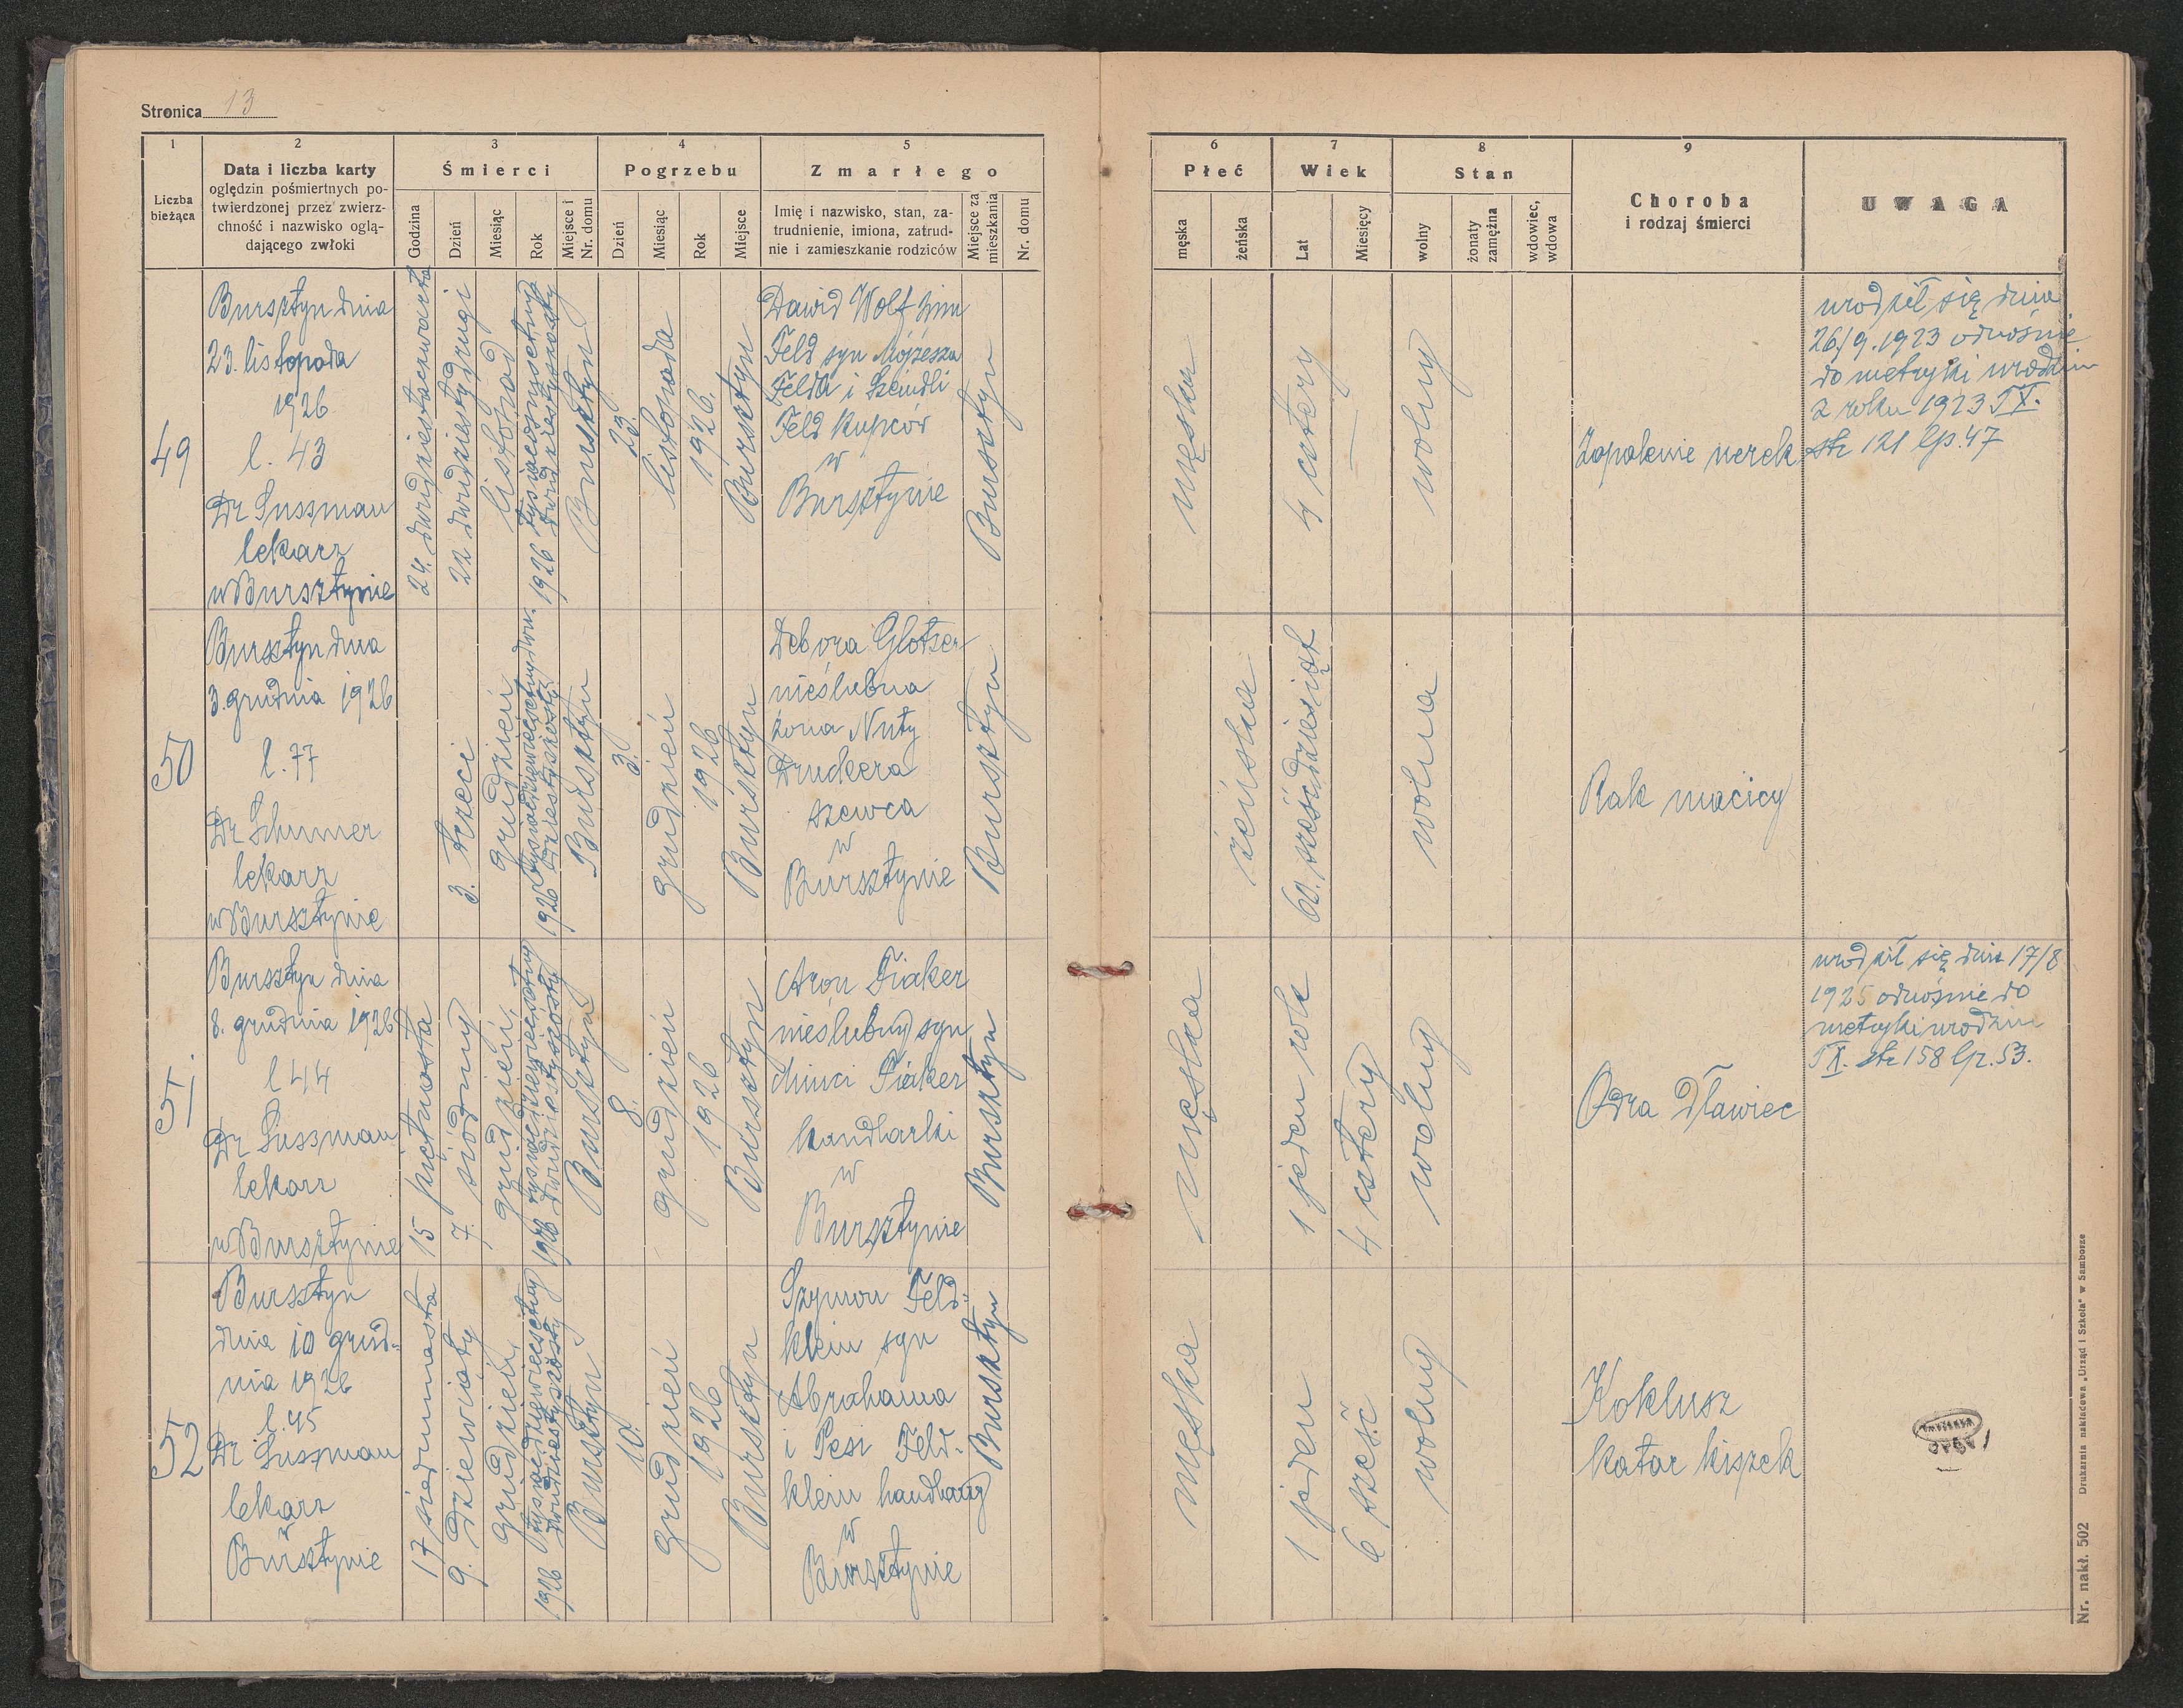 Stronica 13
1
2
3
4
5
6
7
8
9
Liczba bieżąca
Data i liczba karty
oględzin pośmiertnych po-
twierdzonej przez zwierz-
chność i nazwisko oglą-
dającego zwłoki
Śmierci
Godzina
Dzień
Miesiąc
Rok
Miejsce i Nr. domu
Pogrzebu
Dzień
Miesiąc
Rok
Miejsce
Zmarłego
Imię i nazwisko, stan, za-
trudnienie, imiona, zatrud-
nie i zamieszkanie rodziców
Miejsce za
mieszkania
Nr. domu
Płeć
męska
żeńska
Wiek
Lat
Miesięcy
Stan
wolny
żonaty
zamężna
wdowiec,
wdowa
Choroba
i rodzaj śmierci
UWAGA
49
Bursztyn dnia
23. listopada
1926
l. 43
Dr Sussman
lekarz
w Bursztynie
24. dwudziestaczwarta
22 dwudziestydrugi
listopad
1926
dwudziestyszósty
Bursztyn
23.
listopada
1926.
Bursztyn
Dawid Wolf
Feld syn Mojżesza
Felda i Scheindli
Feld kupców
w
Bursztynie
Bursztyn
męska
4 cztery
—
wolny
Zapalenie nerek
urodził się dnia
26/9.1923 odnośnie
do metryki urodzin
z roku 1923 T X.
str 121 lp.47
50
Bursztyn dnia
3. grudnia 1926
l. 77
Dr Schumer
lekarz
w Bursztynie
3. trzeci
grudzień
1926 tysiącdziewięćsetnydwu-
dziestyszósty
Bursztyn
3.
grudzień
1926
Bursztyn
Debora Glotzer
nieślubna
żona Nuty
Druckera
szewca
w
Bursztynie
Bursztyn
żeńska
60. sześćdziesiąt
wolna
Rak macicy
51
Bursztyn dnia
8. grudnia 1926
l 44
Dr Sussman
lekarz
w Bursztynie
15 piętnasta
7. siódmy
grudzień
1926 tysiącdziewięćsetny
dwudziestyszósty
Bursztyn
8.
grudzień
1926
Bursztyn
Aron Fiaker
nieślubny syn
Minci Fiaker
handlarki
w
Bursztynie
Bursztyn
męska
1 jeden rok
4 cztery
wolny
Odra Dławiec
urodził się dnia 17/8
1925 odnośnie do
metryki urodzin
T X. str 158 lp. 53.
52
Bursztyn
dnia 10 grud-
nia 1926
l. 45
Dr Sussman
lekarz
w
Bursztynie
17 siedmnasta
9. dziewiąty
grudzień
1926 tysiącdziewięćsetny
dwudziestyszósty
Bursztyn
10.
grudzień
1926
Bursztyn
Szymon Feld-
klein syn
Abrahama
i Pesi Feld-
klein handlarzy
w
Bursztynie
Bursztyn
męska
1 jeden
6 sześć
wolny
Koklusz
katar kiszek
Nr. nakł. 502 Drukarnia nakładowa „Urząd i Szkoła“ w Samborze